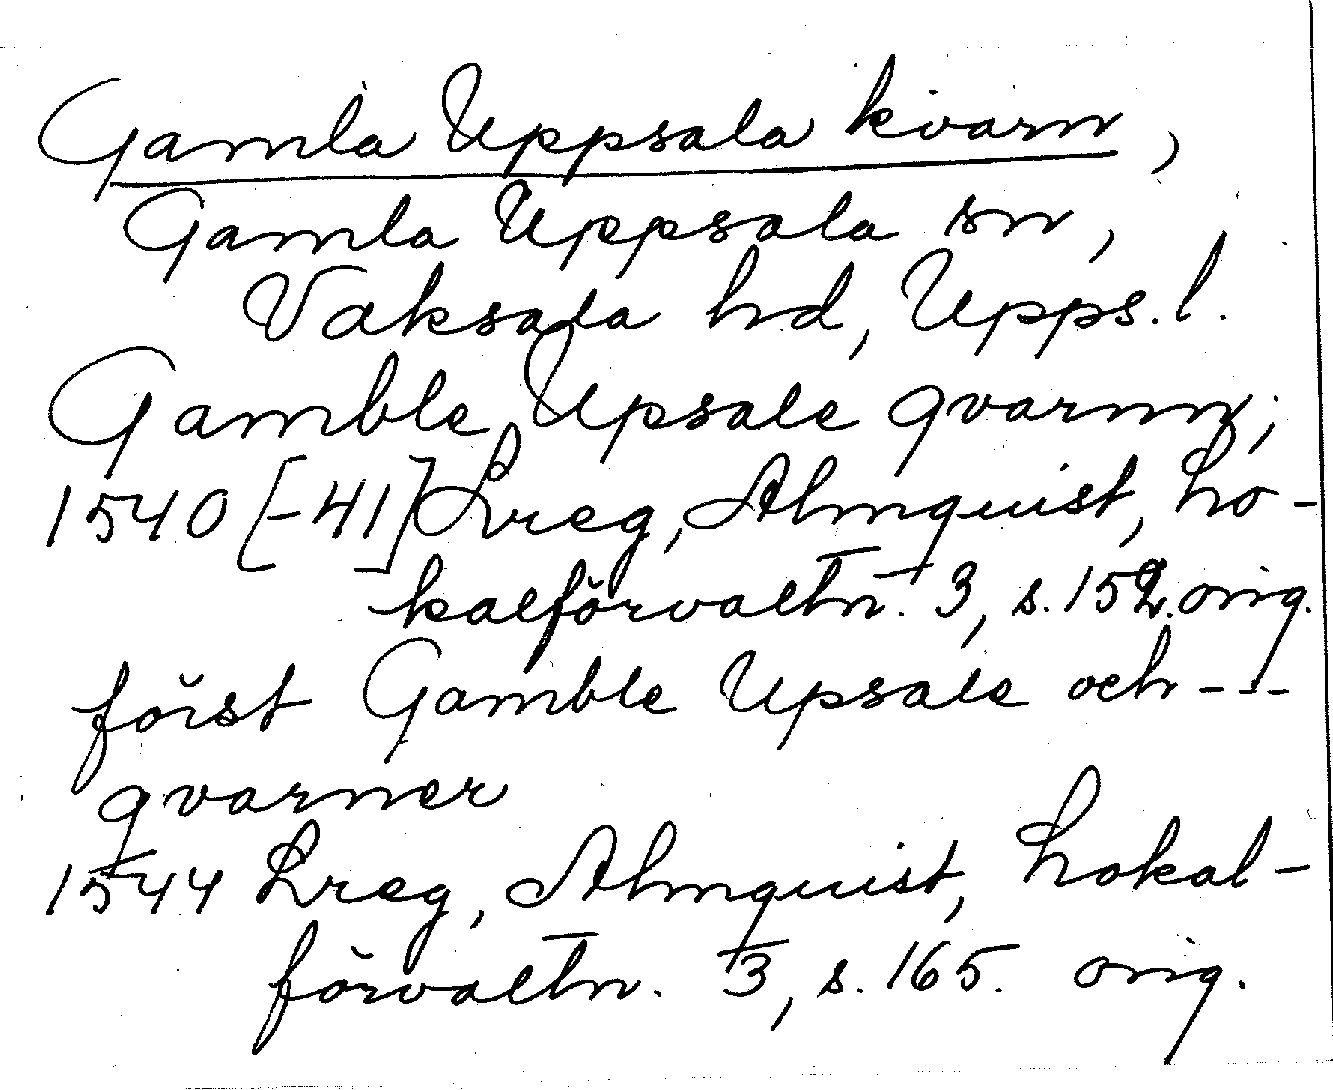 Gamla Uppsala kvarn,
Gamla Uppsala sn,
Vaksala hd, Upps.l.
Gamble Upsale qvarnn;
1540 [-41] Lreg, Almquist, Lo-
kalförvaltn. 3, s. 152. orig.
först Gamble Upsale och ---
qvarner
1544 Lreg, Almquist, Lokal-
förvaltn. 3, s. 165. orig.